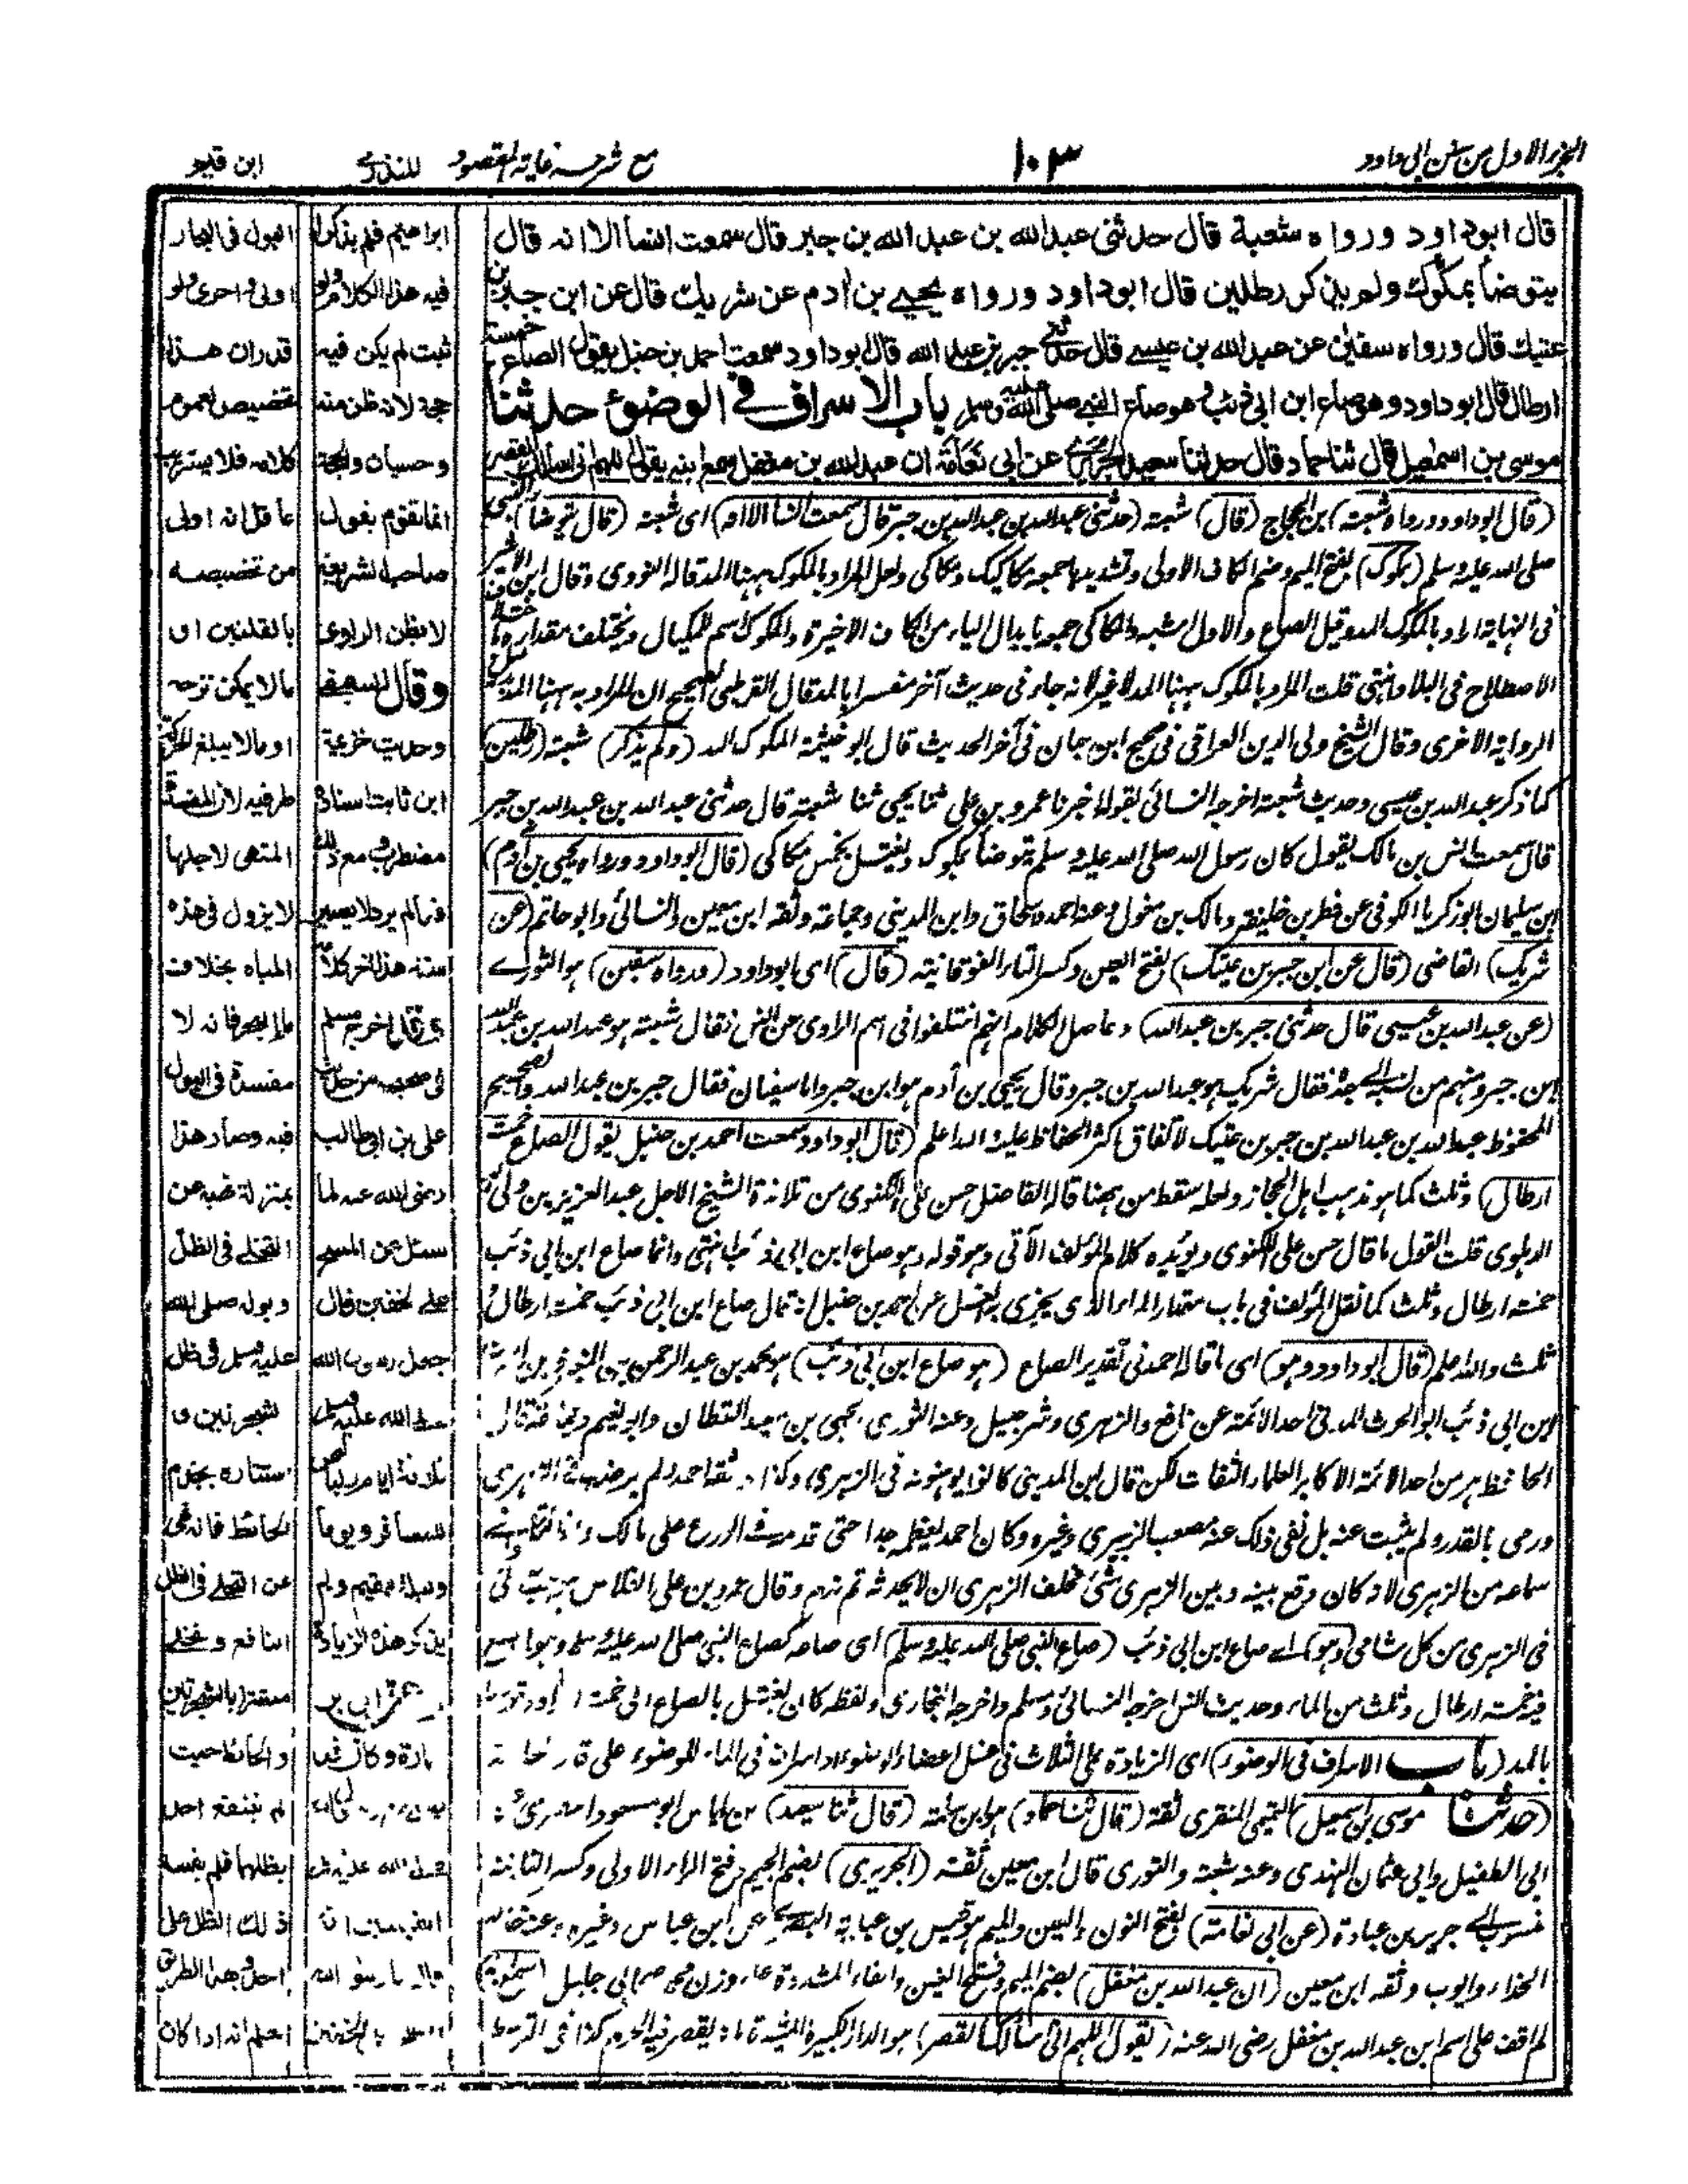 الجزء الاول من سنن ابى داود
١٠٣
مع شرحه غاية المقصود
للمنذرى
ابن قيم
قال ابوداود ورواه شعبة قال حدثنى عبدالله بن عبدالله بن جبر قال سمعت انسا الا انه قال
يتوضأ بمكوك ولم يذكر رطلين قال ابوداود ورواه يحيى بن ادم عن شريك قال عن ابن جبر بن
عتيك قال ورواه سفين عن عبدالله بن عيسى قال حدثنى جبر بن عبد الله قال ابوداود سمعت احمد بن حنبل يقول الصاع خمسة
ارطال قال ابوداود وهو صاع ابن ابى ذئب وهو صاع النبى صلى الله عليه وسلم باب الاسراف فى الوضوء حدثنا
موسى بن اسمعيل قال ثنا حماد قال حدثنا سعيد الجريرى عن ابى نعامة ان عبدالله بن مغفل سمع ابنه يقول اللهم انى اسألك القصر
(قال ابوداود ورواه شعبة) ابن الحجاج (قال) شعبة (حدثنى عبدالله بن عبدالله بن جبر قال سمعت انسا الا انه) اى شعبة (قال يتوضأ) النبى
صلى الله عليه وسلم (بمكوك) بفتح الميم وضم الكاف الاولى وتشديدها جمعه مكاكيك ومكاكى ولعل المراد بالمكوك ههنا المد قاله النووى وقال ابن الاثير
فى النهاية اراد بالمكوك المد وقيل الصاع والاول اشبه والمكاكى جمعه بابدال الياء من الكاف الاخيرة والمكوك اسم للمكيال ويختلف مقداره باختلاف
الاصطلاح فى البلاد انتهى قلت المراد بالمكوك ههنا المد لا غير لانه جاء فى حديث آخر مفسرا بالمد قال القرطبى الصحيح ان المراد به ههنا المد بدليل
الرواية الاخرى وقال الشيخ ولى الدين العراقى فى صحيح ابن حبان فى آخر الحديث قال ابو خيثمة المكوك المد (ولم يذكر) شعبة (رطلين)
كما ذكر عبدالله بن عيسى وحديث شعبة اخرجه النسائى بقوله اخبرنا عمرو بن على ثنا يحيى ثنا شعبة قال حدثنى عبدالله بن عبدالله بن جبر
قال سمعت انس بن مالك يقول كان رسول الله صلى الله عليه وسلم يتوضأ بمكوك ويغتسل بخمس مكاكى (قال ابوداود ورواه يحيى بن آدم)
ابن سليمان ابوزكريا الكوفى عن فطر بن خليفة ومالك بن مغول وعنه احمد واسحاق وابن المدينى وجماعة وثقه ابن معين والنسائى وابوحاتم (عن
شريك) القاضى (قال عن ابن جبر بن عتيك) بفتح العين وكسر التاء الفوقانية (قال) اى ابوداود (ورواه سفين) هو الثورى
(عن عبدالله بن عيسى قال حدثنى جبر بن عبدالله) وحاصل الكلام انهم اختلفوا فى اسم الراوى عن انس فقال شعبة هو عبدالله بن عبدالله
ابن جبر ومنهم من نسبه الى جده فقال شريك هو عبدالله بن جبر وقال يحيى بن آدم هو ابن جبر واما سفيان فقال جبر بن عبدالله والصحيح
المحفوظ عبدالله بن عبدالله بن جبر بن عتيك لاتفاق اكثر الحفاظ عليه والله اعلم (قال ابوداود سمعت احمد بن حنبل يقول الصاع خمسة
ارطال) وثلث كما هو مذهب اهل الحجاز ولعله سقط من ههنا قاله الفاضل حسن على اللكنوى من تلامذة الشيخ الاجل عبدالعزيز بن ولى الله
الدهلوى قلت القول ما قال حسن على اللكنوى ويؤيده كلام المؤلف الآتى وهو قوله وهو صاع ابن ابى ذئب انتهى وانما صاع ابن ابى ذئب
خمسة ارطال وثلث كما نقل المؤلف فى باب مقدار الماء الذى يجزى به الغسل عن احمد بن حنبل انه قال صاع ابن ابى ذئب خمسة ارطال و
ثلث والله اعلم (قال ابوداود وهو) اى ما قاله احمد فى تقدير الصاع (هو صاع ابن ابى ذئب) هو محمد بن عبدالرحمن بن المغيرة بن
ابن ابى ذئب ابو الحرث المدنى احد الائمة عن نافع والزهرى وشرحبيل وعنه الثورى يحيى بن سعيد القطان وابونعيم
ورمى بالقدر ولم يثبت عنه بل نفى ذلك عنه مصعب الزبيرى وغيره وكان احمد يعظمه جدا حتى قدمه فى الورع على مالك وانما تكلموا فى
سماعه من الزهرى لانه كان وقع بينه وبين الزهرى شئ فحلف الزهرى ان لا يحدثه ثم ندم وقال عمرو بن على الفلاس
فى الزهرى من كل شامى (وهو) اى صاع ابن ابى ذئب (صاع النبى صلى الله عليه وسلم) اى صاعه كصاع النبى صلى الله عليه وسلم
فيه خمسة ارطال وثلث من الماء وحديث انس اخرجه النسائى ومسلم واخرجه البخارى ولفظه كان يغتسل بالصاع الى خمسة امداد ويتوضأ
بالمد (باب الاسراف فى الوضوء) اى الزيادة على الثلاث فى غسل اعضاء الوضوء او اسراف فى الماء للوضوء على
(حدثنا موسى بن اسمعيل) التيمى المنقرى ثقة (قال ثنا حماد) هو ابن سلمة (قال ثنا سعيد)
ابى الطفيل وابى عثمان النهدى وعنه شعبة والثورى قال ابن معين ثقة (الجريرى) بضم الجيم وفتح الراء الاولى وكسر الثانية
منسوب الى جرير بن عبادة (عن ابى نعامة) بفتح النون والعين والميم هو قيس بن عباية البصرى عن ابن عباس وغيره وعنه خالد
الحذاء وايوب وثقه ابن معين (ان عبدالله بن مغفل) بضم الميم وفتح الغين والفاء المشددة على وزن محمد صحابى جليل (سمع ابنه)
لم اقف على اسم ابن عبدالله بن مغفل رضى الله عنه (يقول اللهم انى اسألك القصر) هو الدار الكبيرة المشيدة
ابراهيم فلم يذكر
فيه هذا الكلام ولو
ثبت لم يكن فيه
حجة لانه ظن منه
وحسبان والحجة
انما تقوم بقول
صاحب الشريعة
لا بظن الراوى
وحديث خزيمة
ابن ثابت اسناده
مضطرب ومع ذلك
وقد اخرج مسلم
فى صحيحه من حديث
على بن ابى طالب
رضى الله عنه لما
سئل عن المسح
على الخفين قال
جعل رسول الله
صلى الله عليه وسلم
ثلاثة ايام ولياليهن
للمسافر ويوما
وليلة للمقيم ولم
يذكر هذه الزيادة
البول فى البحار
اولى واحرى ولو
قدر ان هذا
تخصيص للعموم
كلامه فلا يستريب
عاقل انه اولى
من تخصيصه
بالقلتين او
ما لا يمكن نزحه
او ما لا يبلغ
طرفيه لان المفسدة
المنهى لاجلها
لا يزول فى هذه
المياه بخلاف
ماء البحر فانه لا
مفسدة فى البول
فيه وصار هذا
بمنزلة نهيه عن
التخلى فى الظل
وبوله صلى الله
عليه وسلم فى ظل
الشجرتين و
استتاره بجذم
الحائط فانه نهى
عن التخلى فى الظل
النافع وتخلى
مستترا بالشجرتين
والحائط حيث
لم ينتفع احد
بظلهما فلم يفسد
ذلك الظل على
احد وبهذا الطريق
اعلم انه اذا كان